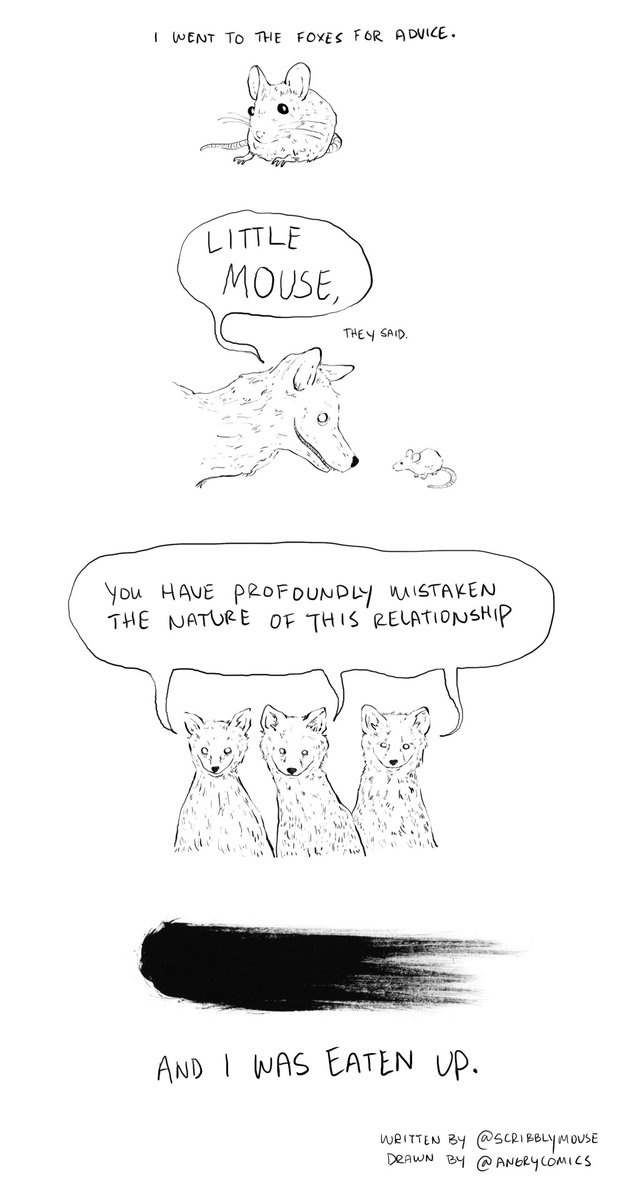 I WENT TO THE FOXES FOR ADVICE.
LITTLE
MOUSE,
THEY SAID.
YOU HAVE PROFOUNDLY MISTAKEN
THE NATURE OF THIS RELATIONSHIP
AND I WAS EATEN UP.
WRITTEN BY @SCRIBBLYMOUSE
DRAWN BY @ANGRYCOMICS